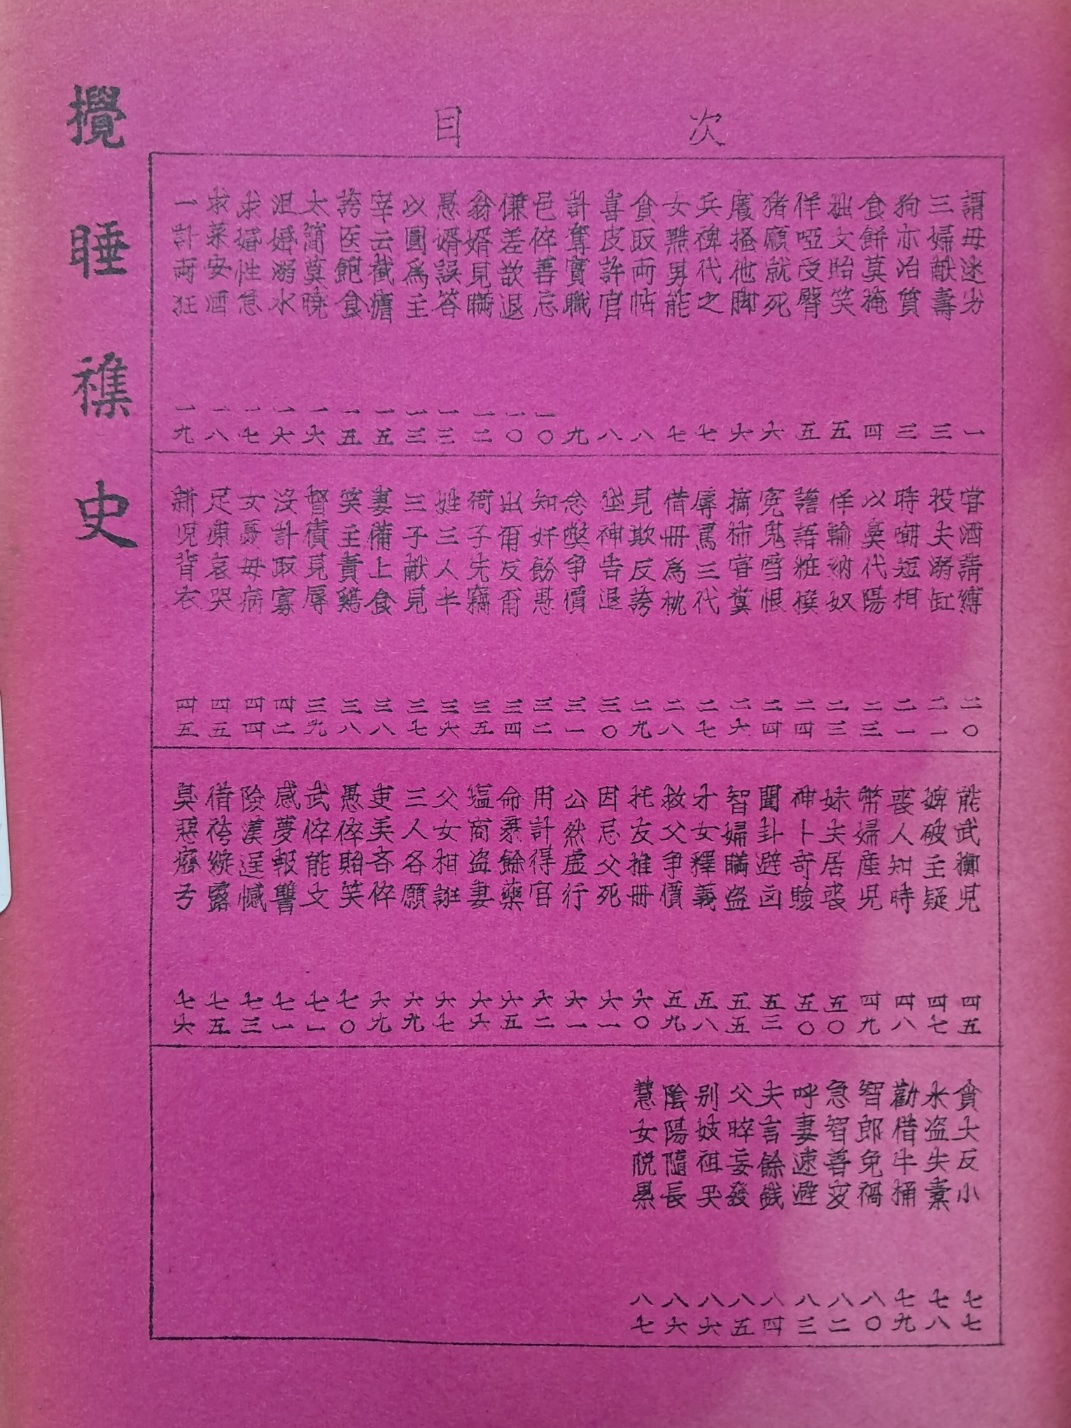 攪睡襍史
次目
謂毋迷劣 一
三婦献壽 三
狗亦冶質 三
食餅莫掩 四
拙文貽笑 五
佯啞受臀 五
猪願就死 六
廳搔他脚 六
兵裨代之 七
女點男能 七
貪取両帖 八
喜皮許官 八
計奪寶職 九
邑倅善忘 一〇
傔差欲退 一〇
翁婿見瞞 一二
愚婿誤答 一三
以圓為主 一三
宰云截酒 一五
誇医飽食 一五
太簡莫曉 一六
沮婚溺水 一六
求婚性急 一七
求菜安酒 一八
一計両狂 一九
甞酒請縛 二〇
役夫溺缸 二一
時嘲短相 二一
以糞代陽 二三
佯輸納奴 二三
譫語粧楔 二四
寃鬼雪恨 二四
摘柿甞糞 二六
辱罵三代 二七
借冊為枕 二八
見欺反誇 二九
坐神告退 三〇
念獘争價 三一
知奸飾愚 三二
出爾反爾 三四
衛子先竊 三五
姓三人半 三六
三子献見 三七
妻備上食 三八
笑主責鷄 三八
督債見辱 三九
没計取寡 四二
女憂毋病 四四
足療哀哭 四五
新児背衣 四五
能武擲児 四五
婢破主疑 四七
喪人知時 四八
幣婦産児 四九
妹夫居喪 五〇
神卜奇驗 五〇
聞卦避凶 五三
智婦瞞盗 五五
才女釋義 五八
救父争價 五九
托友推冊 六〇
因忌父死 六一
公然虚行 六一
用計得官 六二
命泰餘藥 六五
塩商盗妻 六六
父女相誑 六七
三人各願 六九
吏美吝倅 六九
愚倅貽笑 七〇
武倅能文 七一
感夢報讐 七一
陰漢逞憾 七三
借袴綻露 七五
莫惡癈方 七六
貪大反小 七七
水盗失橐 七八
勸借牛桶 七九
智郎免禍 八〇
急智善変 八二
呼妻速避 八三
夫言餘戲 八四
父晬妄發 八五
别妓祖哭 八六
陰陽隨長 八六
慧女脱累 八七